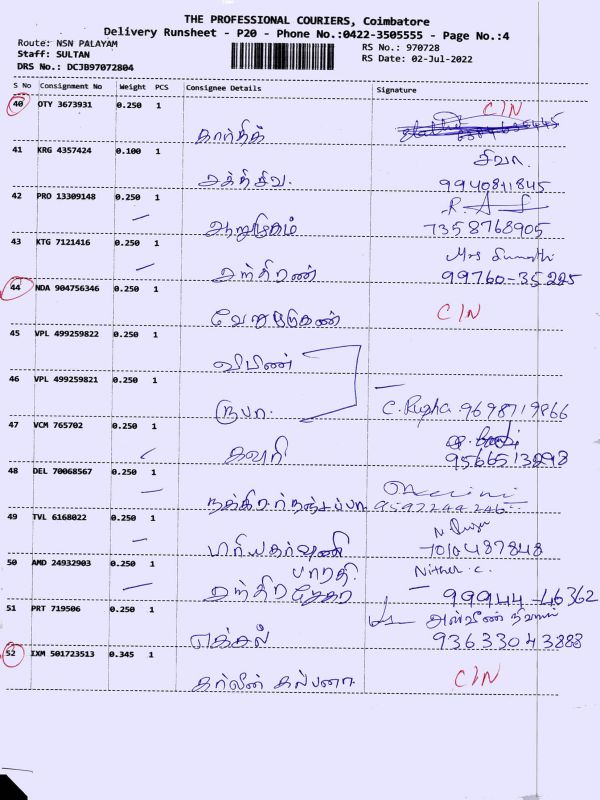 THE PROFESSIONAL COURIERS, Coimbatore
Delivery Runsheet - P20 - Phone No.:0422-3505555 - Page No.:4
Route: NSN PALAYAM
RS No.: 970728
Staff: SULTAN
RS Date: 02-Jul-2022
DRS No.: DCJB97072804
S No Consignment No Weight PCS Consignee Details Signature
40 OTY 3673931 0.250 1 C/N
கார்திக்
41 KRG 4357424 0.100 1 சிவா
சக்திசிவ. 9940811845
42 PRO 13309148 0.250 1
ஆறுமுகம் 7358768905
43 KTG 7121416 0.250 1 Mrs Sumathi
சந்திரன் 99760-35225
44 NDA 904756346 0.250 1 C/N
45 VPL 499259822 0.250 1
விபின்
46 VPL 499259821 0.250 1
ரூபா. C. Rupha. 9698719866
47 VCM 765702 0.250 1
கவுரி 9566513298
48 DEL 70068567 0.250 1
9597244246
49 TVL 6168022 0.250 1
7010487848
50 AMD 24932903 0.250 1 பாரதி Nither. C.
சந்திரசேகர 99944-46362
51 PRT 719506 0.250 1
93633043888
52 IXM 501723513 0.345 1 C/N
கல்பனா